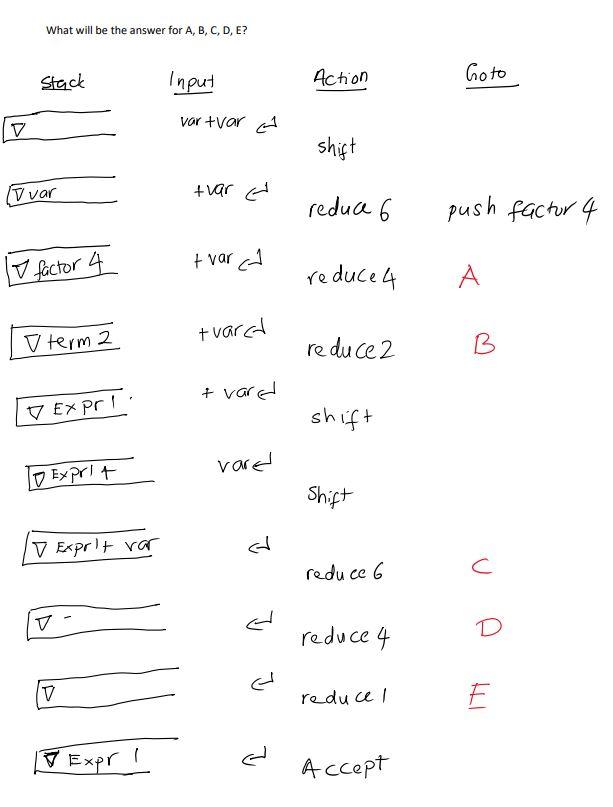 What will be the answer for A, B, C, D, E?
Stack Input Action Goto
▽ var+var ↵ shift
▽ var +var ↵ reduce 6 push factor 4
▽ factor 4 +var ↵ reduce 4 A
▽ term 2 +var ↵ reduce 2 B
▽ Expr 1 + var ↵ shift
▽ Expr 1 + var ↵ Shift
▽ Expr 1 + var ↵ reduce 6 C
▽ - ↵ reduce 4 D
▽ ↵ reduce 1 E
▽ Expr 1 ↵ Accept